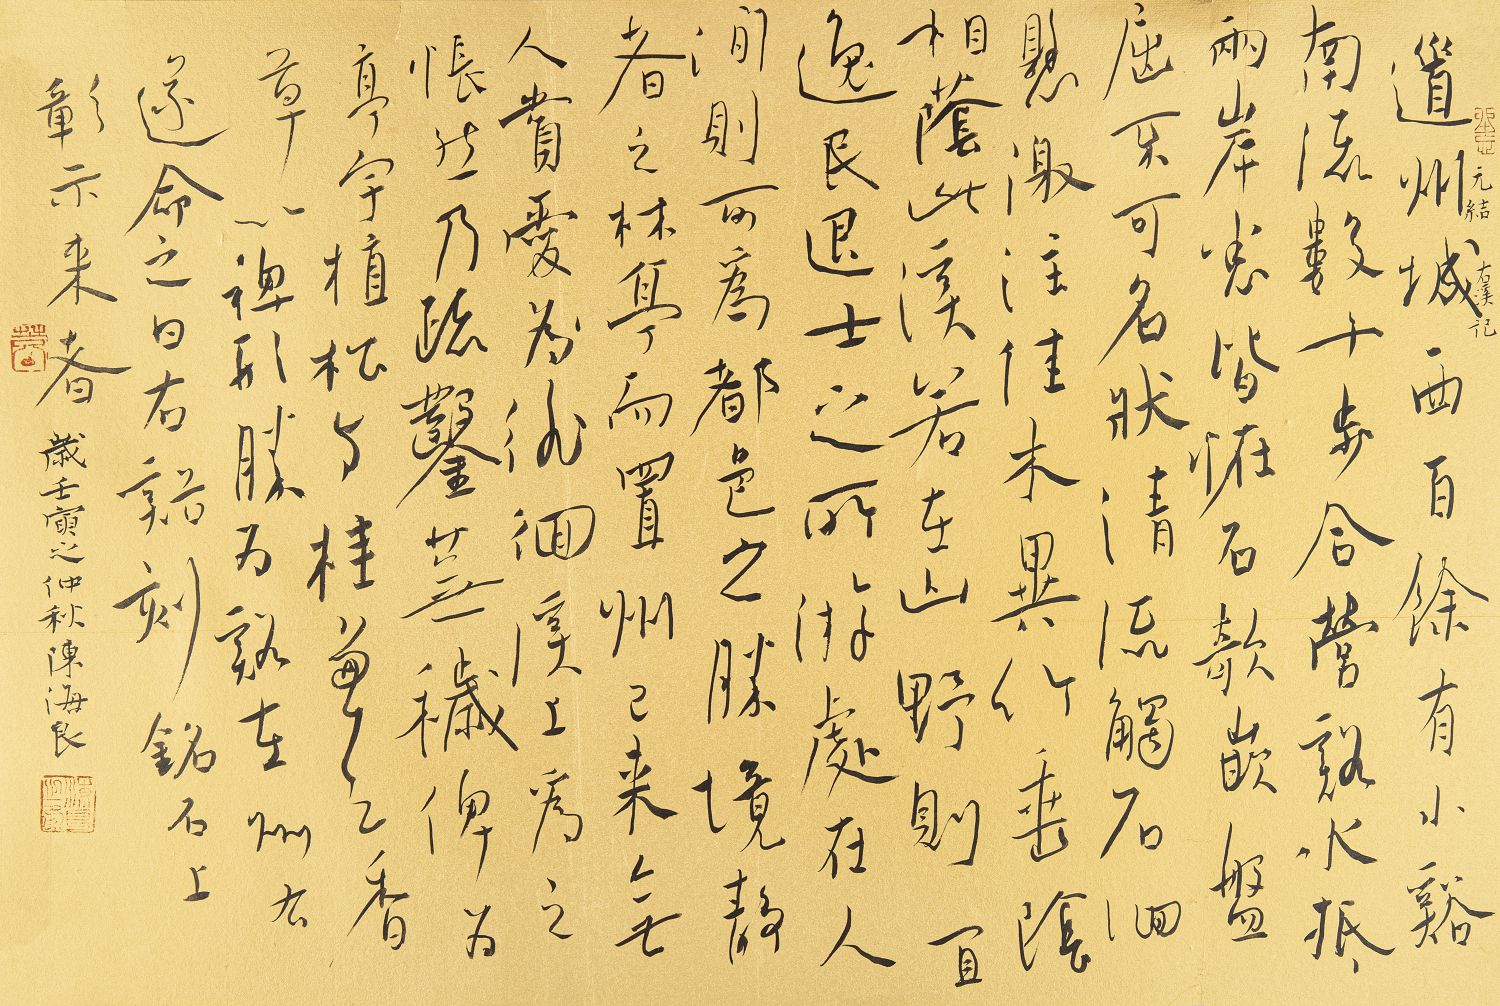 道州城西百餘有小谿
南流數十步合營谿水抵
兩岸悉皆恠石欹嵌盤
屈不可名狀清流觸石洄
懸激注佳木異竹垂陰
相蔭此溪若在山野則宜
逸民退士之所游處在人
間則可為都邑之勝境靜
者之林亭而置州已来無
人賞愛為徘徊溪上為之
悵然乃疏鑿蕪穢俾为
亭宇植松与桂兼之以香
草以裨形勝为谿在州右
遂命之曰右谿刻銘石上
彰示来者
歲壬寅之仲秋陳海良
元結 右溪記